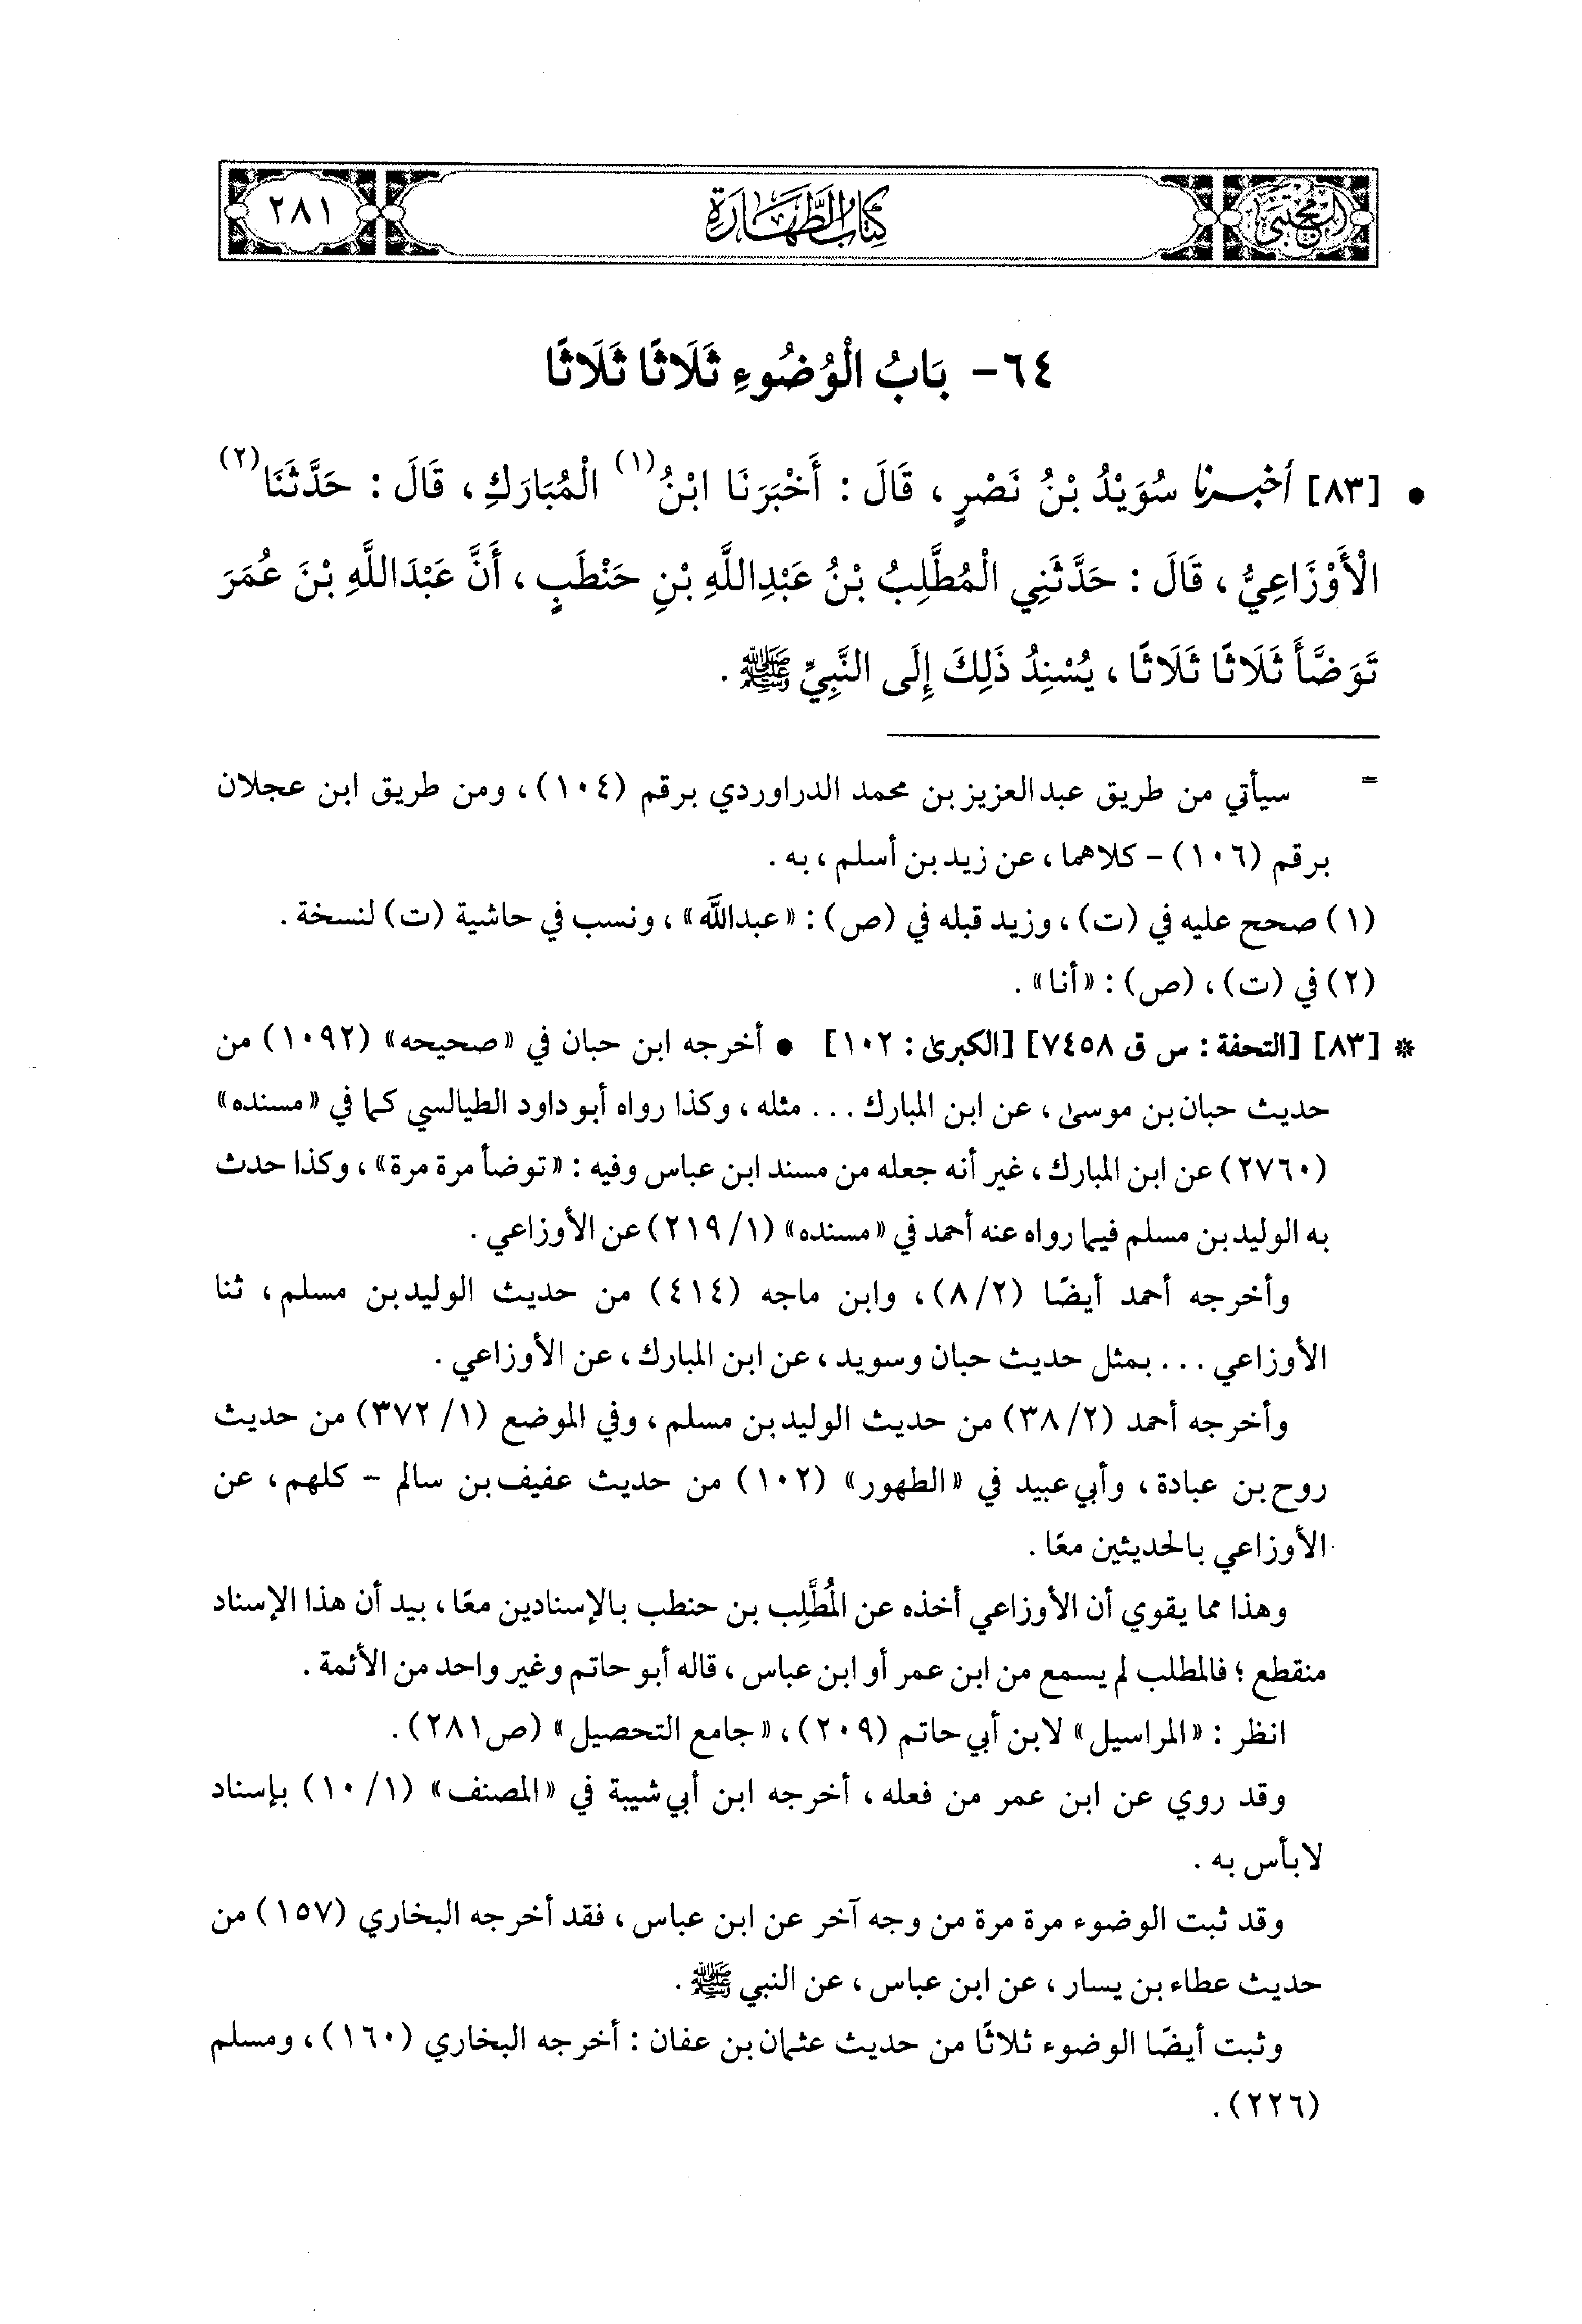 المجتبى
كتاب الطهارة
٢٨١
٦٤- بَابُ الْوُضُوءِ ثَلَاثًا ثَلَاثًا
• [٨٣] أخبرنا سُوَيْدُ بْنُ نَصْرٍ، قَالَ: أَخْبَرَنَا ابْنُ(١) الْمُبَارَكِ، قَالَ: حَدَّثَنَا(٢)
الْأَوْزَاعِيُّ، قَالَ: حَدَّثَنِي الْمُطَّلِبُ بْنُ عَبْدِاللَّهِ بْنِ حَنْطَبٍ، أَنَّ عَبْدَاللَّهِ بْنَ عُمَرَ
تَوَضَّأَ ثَلَاثًا ثَلَاثًا، يُسْنِدُ ذَلِكَ إِلَى النَّبِيِّ ﷺ.
= سيأتي من طريق عبدالعزيز بن محمد الدراوردي برقم (١٠٤)، ومن طريق ابن عجلان
برقم (١٠٦) - كلاهما، عن زيد بن أسلم، به.
(١) صحح عليه في (ت)، وزيد قبله في (ص): «عبدالله»، ونسب في حاشية (ت) لنسخة.
(٢) في (ت)، (ص): «أنا».
* [٨٣] [التحفة: س ق ٧٤٥٨] [الكبرى: ١٠٢] • أخرجه ابن حبان في «صحيحه» (١٠٩٢) من
حديث حبان بن موسى، عن ابن المبارك... مثله، وكذا رواه أبو داود الطيالسي كما في «مسنده»
(٢٧٦٠) عن ابن المبارك، غير أنه جعله من مسند ابن عباس وفيه: «توضأ مرة مرة»، وكذا حدث
به الوليد بن مسلم فيما رواه عنه أحمد في «مسنده» (٢١٩/١) عن الأوزاعي.
وأخرجه أحمد أيضًا (٨/٢)، وابن ماجه (٤١٤) من حديث الوليد بن مسلم، ثنا
الأوزاعي... بمثل حديث حبان وسويد، عن ابن المبارك، عن الأوزاعي.
وأخرجه أحمد (٣٨/٢) من حديث الوليد بن مسلم، وفي الموضع (٣٧٢/١) من حديث
روح بن عبادة، وأبي عبيد في «الطهور» (١٠٢) من حديث عفيف بن سالم - كلهم، عن
الأوزاعي بالحديثين معًا.
وهذا مما يقوي أن الأوزاعي أخذه عن المُطَّلِب بن حنطب بالإسنادين معًا، بيد أن هذا الإسناد
منقطع؛ فالمطلب لم يسمع من ابن عمر أو ابن عباس، قاله أبو حاتم وغير واحد من الأئمة.
انظر: «المراسيل» لابن أبي حاتم (٢٠٩)، «جامع التحصيل» (ص٢٨١).
وقد روي عن ابن عمر من فعله، أخرجه ابن أبي شيبة في «المصنف» (١٠/١) بإسناد
لا بأس به.
وقد ثبت الوضوء مرة مرة من وجه آخر عن ابن عباس، فقد أخرجه البخاري (١٥٧) من
حديث عطاء بن يسار، عن ابن عباس، عن النبي ﷺ.
وثبت أيضًا الوضوء ثلاثًا من حديث عثمان بن عفان: أخرجه البخاري (١٦٠)، ومسلم
(٢٢٦).